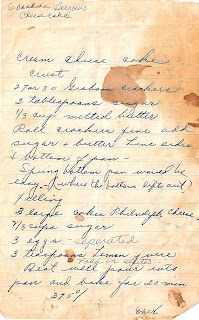 Cheesecake
Cream Cheese cake
Crust
27 or 30 Graham crackers
2 tablespoons sugar
1/3 cup melted butter
Roll crackers fine add
sugar & butter Line sides
& bottom of pan -
Spring bottom pan would be
easy. (where the bottom lifts out)
Filling
3 large cakes Philadelph cheese
2/3 cups sugar
3 eggs seperated
3 teaspoons lemon juice
Fold in whites
Beat well pour into
pan and bake for 20 min
375°
over